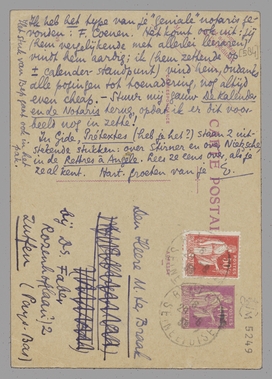 Ik heb het type van je "geniale" notaris ge-
vonden: F. Coenen. Het komt ook uit: jij
(hem vergelijkende met allerlei leeraren)
vindt hem aardig; ik (hem zettende op
± calander-standpunt) vind hem, ondanks
alle pogingen tot toenadering, nog altijd
even cheap. – Stuur mij gauw Ds Kalander
en de Notaris terug, opdat ik er dit voor-
beeld nog in zette.
In Gide, Prétextes (heb je het?) staan 2 uit-
stekende stukken: over Stirner en over Nietzsche,
in de Lettres à Angèle. Lees ze eens over, als je
ze al kent. Hart. groeten van je
CARTE POSTALE
Den Heere M. ter Braak
bij Ds. Faber
Rozenhoflaan 2
Zutfen
(Pays-Bas)
M 5249